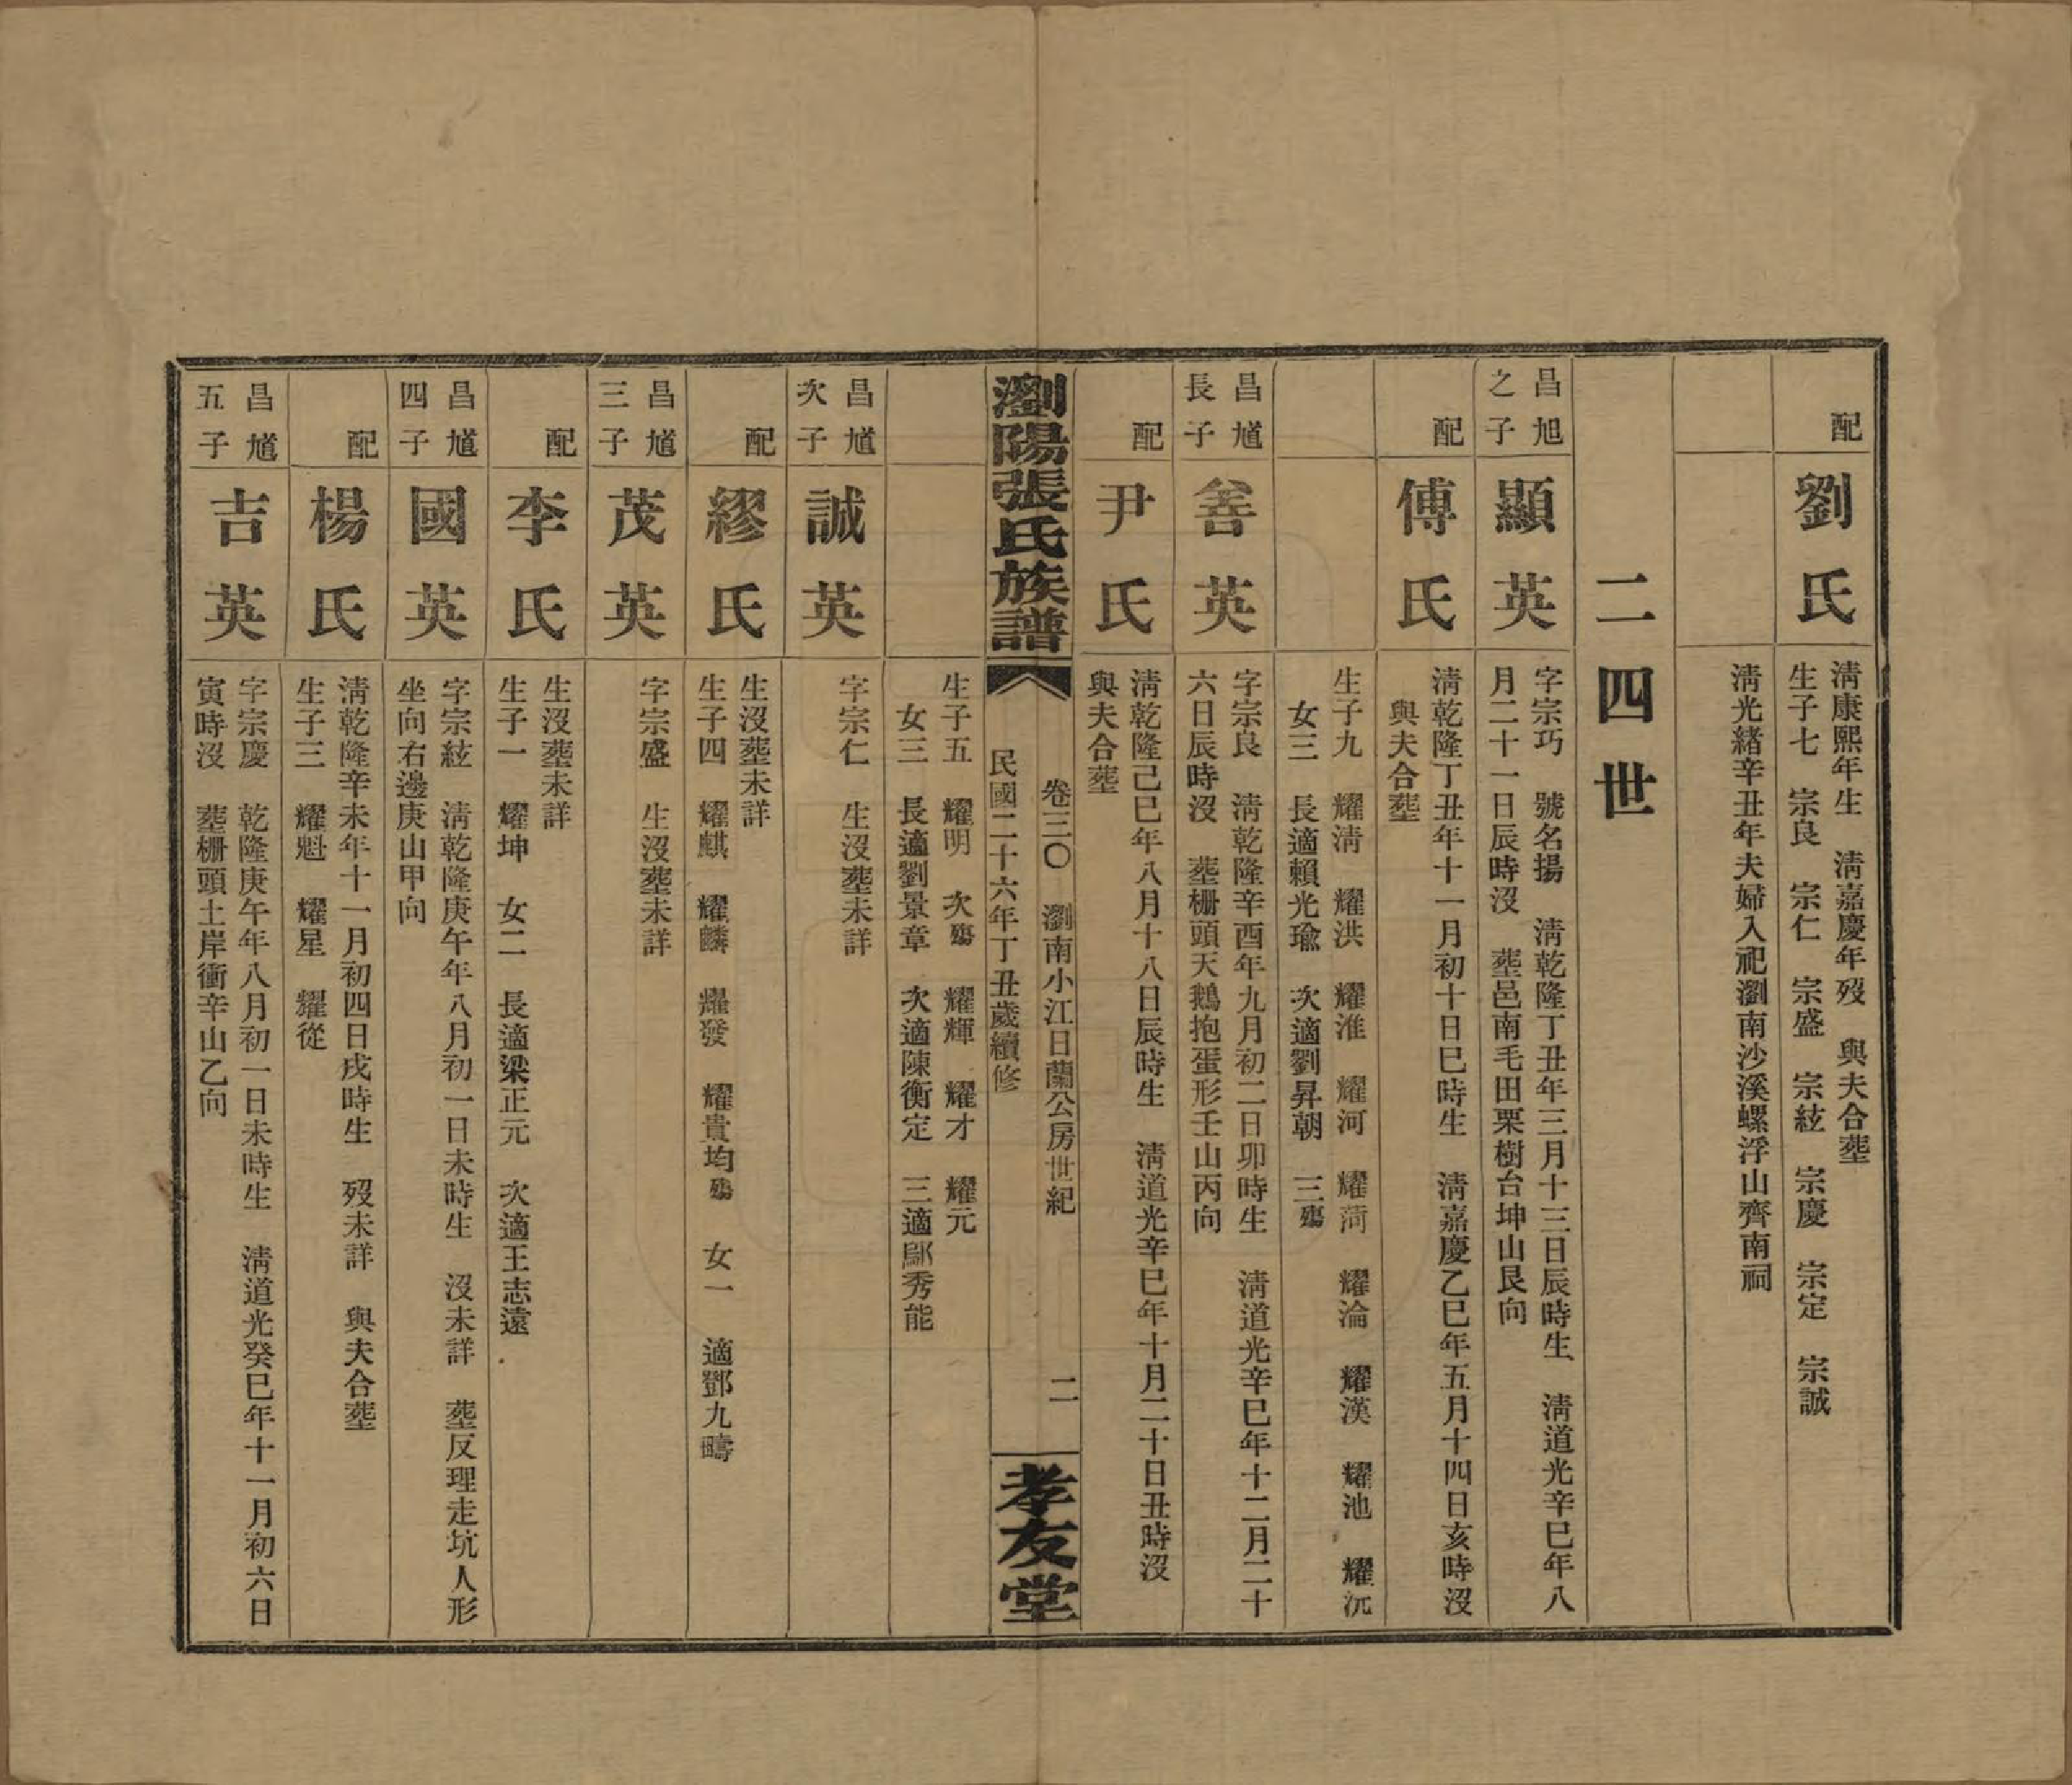 配
劉氏
淸康熙年生　淸嘉慶年歿　與夫合塟
生子七　宗良　宗仁　宗盛　宗絃　宗慶　宗定　宗誠
淸光緒辛丑年夫婦入祀瀏南沙溪螺浮山齊南祠
二四世
昌旭
之子
顯英
字宗巧　號名揚　淸乾隆丁丑年三月十三日辰時生　淸道光辛巳年八
月二十一日辰時沒　塟邑南毛田栗樹台坤山艮向
配
傅氏
淸乾隆丁丑年十一月初十日巳時生　淸嘉慶乙巳年五月十四日亥時沒
與夫合塟
生子九　耀淸　耀洪　耀淮　耀河　耀菏　耀淪　耀漢　耀池　耀沅
女三　長適賴光瑜　次適劉昇朝　三殤
昌馗
長子
善英
字宗良　淸乾隆辛酉年九月初二日卯時生　淸道光辛巳年十二月二十
六日辰時沒　塟栅頭天鵝抱蛋形壬山丙向
配
尹氏
淸乾隆己巳年八月十八日辰時生　淸道光辛巳年十月二十日丑時沒
與夫合塟
瀏陽張氏族譜
卷三〇　瀏南小江日蘭公房世紀　二
民國二十六年丁丑歲續修
孝友堂
生子五　耀明　次殤　耀輝　耀才　耀元
女三　長適劉景章　次適陳衡定　三適鄔秀能
昌馗
次子
誠英
字宗仁　生沒塟未詳
配
繆氏
生沒塟未詳
生子四　耀麒　耀麟　耀發　耀貴均殤　女一　適鄧九疇
昌馗
三子
茂英
字宗盛　生沒塟未詳
配
李氏
生沒塟未詳
生子一　耀坤　女二　長適梁正元　次適王志遠
昌馗
四子
國英
字宗絃　淸乾隆庚午年八月初一日未時生　沒未詳　塟反理走坑人形
坐向右邊庚山甲向
配
楊氏
淸乾隆辛未年十一月初四日戌時生　歿未詳　與夫合塟
生子三　耀魁　耀星　耀從
昌馗
五子
吉英
字宗慶　乾隆庚午年八月初一日未時生　淸道光癸巳年十一月初六日
寅時沒　塟栅頭土岸衝辛山乙向